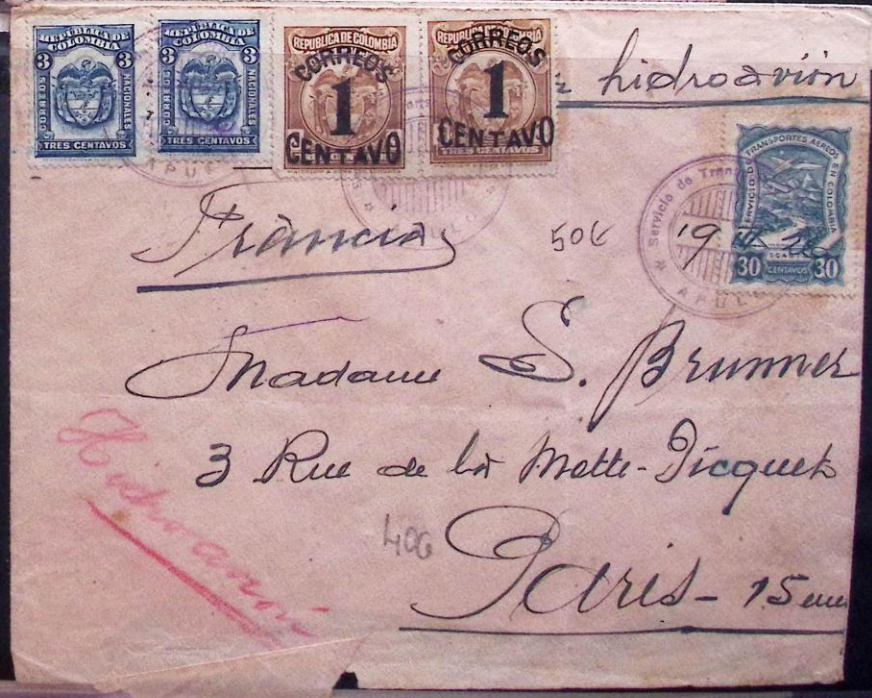 REPUBLICA DE COLOMBIA
3 3
CORREOS NACIONALES
TRES CENTAVOS
REPUBLICA DE COLOMBIA
3 3
CORREOS NACIONALES
TRES CENTAVOS
REPUBLICA DE COLOMBIA
CORREOS
1
CENTAVO
REPUBLICA DE COLOMBIA
CORREOS
1
CENTAVO
TRES CENTAVOS
hidroavión
SERVICIO DE TRANSPORTES AEREOS EN COLOMBIA
30 CENTAVOS 30
Servicio de Trans
Francia
50€
19
Madame S. Brunner
3 Rue de la Motte-Picquet
Paris - 15 eme
Hidroavion